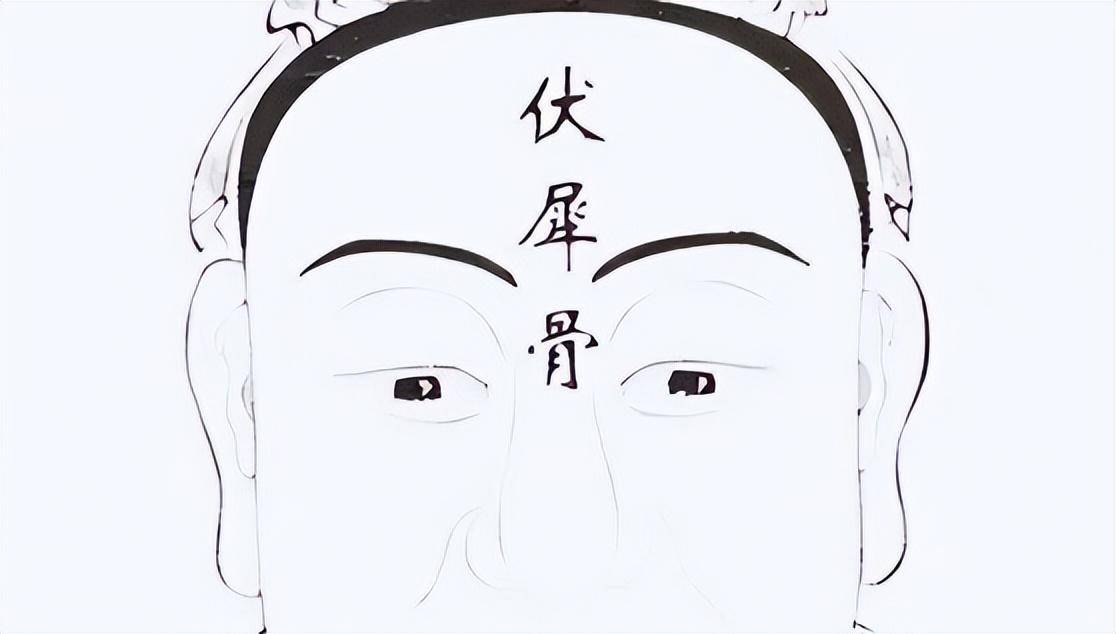 伏犀骨